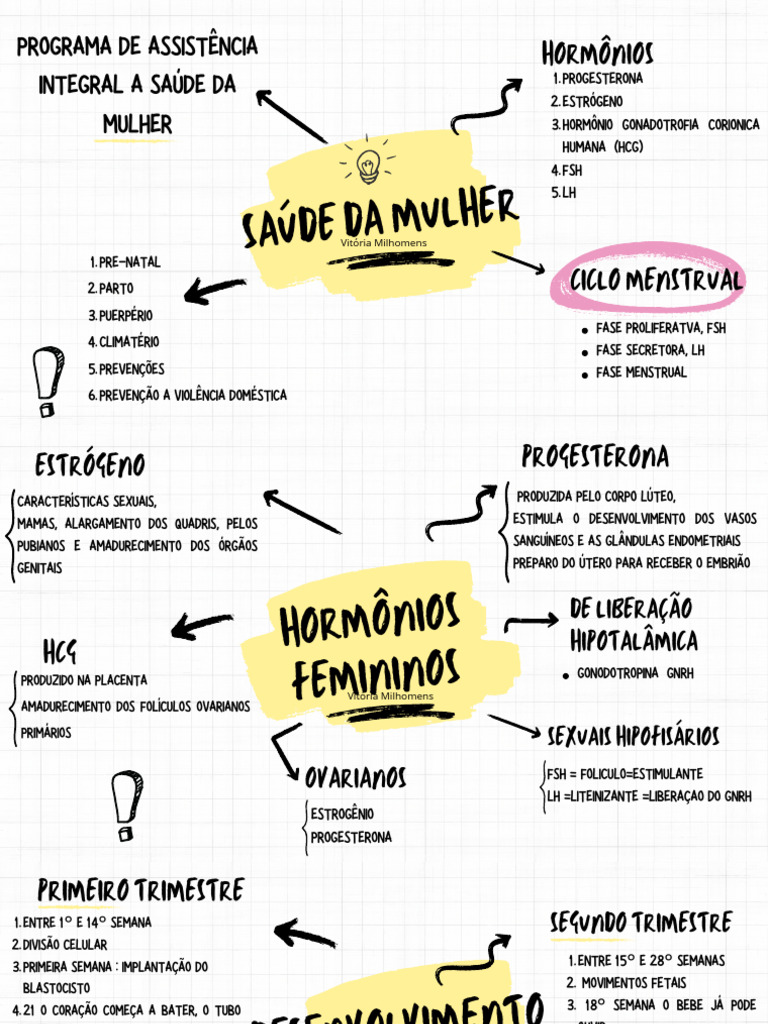 PROGRAMA DE ASSISTÊNCIA
INTEGRAL A SAÚDE DA
MULHER
HORMÔNIOS
1. PROGESTERONA
2. ESTRÓGENO
3. HORMÔNIO GONADOTROFIA CORIONICA
HUMANA (HCG)
4. FSH
5. LH
SAÚDE DA MULHER
Vitória Milhomens
1. PRE-NATAL
2. PARTO
3. PUERPÉRIO
4. CLIMATÉRIO
5. PREVENÇÕES
6. PREVENÇÃO A VIOLÊNCIA DOMÉSTICA
CICLO MENSTRUAL
• FASE PROLIFERATVA, FSH
• FASE SECRETORA, LH
• FASE MENSTRUAL
ESTRÓGENO
CARACTERÍSTICAS SEXUAIS,
MAMAS, ALARGAMENTO DOS QUADRIS, PELOS
PUBIANOS E AMADURECIMENTO DOS ÓRGÃOS
GENITAIS
PROGESTERONA
PRODUZIDA PELO CORPO LÚTEO,
ESTIMULA O DESENVOLVIMENTO DOS VASOS
SANGUÍNEOS E AS GLÂNDULAS ENDOMETRIAIS
PREPARO DO ÚTERO PARA RECEBER O EMBRIÃO
HORMÔNIOS
FEMININOS
Vitória Milhomens
DE LIBERAÇÃO
HIPOTALÂMICA
• GONODOTROPINA GNRH
HCG
PRODUZIDO NA PLACENTA
AMADURECIMENTO DOS FOLÍCULOS OVARIANOS
PRIMÁRIOS
SEXUAIS HIPOFISÁRIOS
FSH = FOLICULO=ESTIMULANTE
LH =LITEINIZANTE =LIBERAÇAO DO GNRH
OVARIANOS
ESTROGÊNIO
PROGESTERONA
PRIMEIRO TRIMESTRE
1. ENTRE 1º E 14º SEMANA
2. DIVISÃO CELULAR
3. PRIMEIRA SEMANA : IMPLANTAÇÃO DO
BLASTOCISTO
4. 21 O CORAÇÃO COMEÇA A BATER, O TUBO
SEGUNDO TRIMESTRE
1. ENTRE 15º E 28º SEMANAS
2. MOVIMENTOS FETAIS
3. 18º SEMANA O BEBE JÁ PODE
DESENVOLVIMENTO